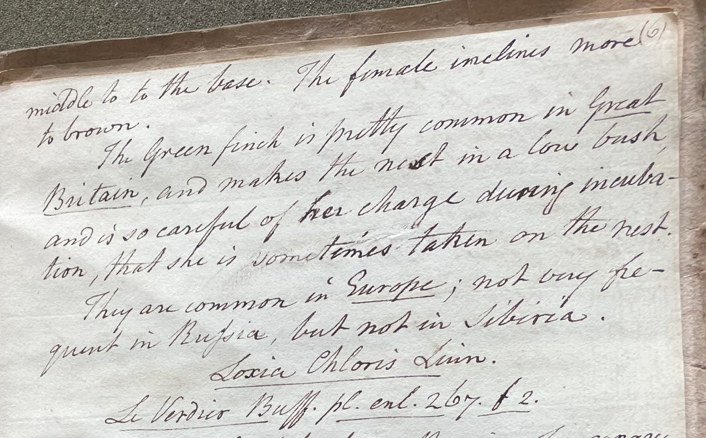 (6)
middle to to the base. The female inclines more
to brown.
The Green finch is pretty common in Great
Britain, and makes the nest in a low bush,
and is so careful of her charge during incuba-
tion, that she is sometimes taken on the nest.
They are common in Europe; not very fre-
quent in Russia, but not in Sibiria.
Loxia Chloris Linn.
Le Verdier Buff. pl. enl. 267. f 2.